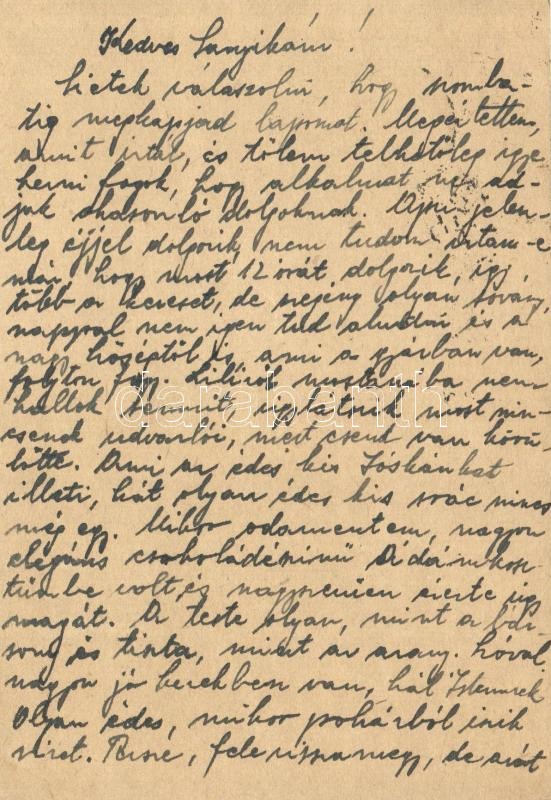 Kedves Sanyikám!
Sietek válaszolni, hogy szomba-
tig megkapjad lapomat. Megértettem,
amit írtál, és tőlem telhetőleg igye
kezni fogok, hogy alkalmat ne ad-
jak hasonló dolgoknak. Apu jelen-
leg éjjel dolgozik, nem tudom írtam-e
már, hogy most 12 órát dolgozik, így
több a kereset, de szegény olyan sovány,
nappal nem igen tud aludni és a
nagy hőségtől is, ami a gyárban van,
folyton Liliről mostanába nem
hallok semmit, úgylátszik most nin-
csenek udvarlói, mert csend van körü-
lötte. Ami az édes kis Jóskánkat
illeti, hát olyan édes kis srác nincs
még egy. Mikor odamentem, nagyon
elegáns csokoládészinű Adámkosz-
tümbe volt, és nagyszerűen érezte
magát. A teste olyan, mint a bár-
sony és tiszta, mint az arany. Szóval,
nagyon jó kezekben van, hál Istennek
Olyan édes, mikor pohárból iszik
vizet. Persze, fele issza meg, de azért
darabanth